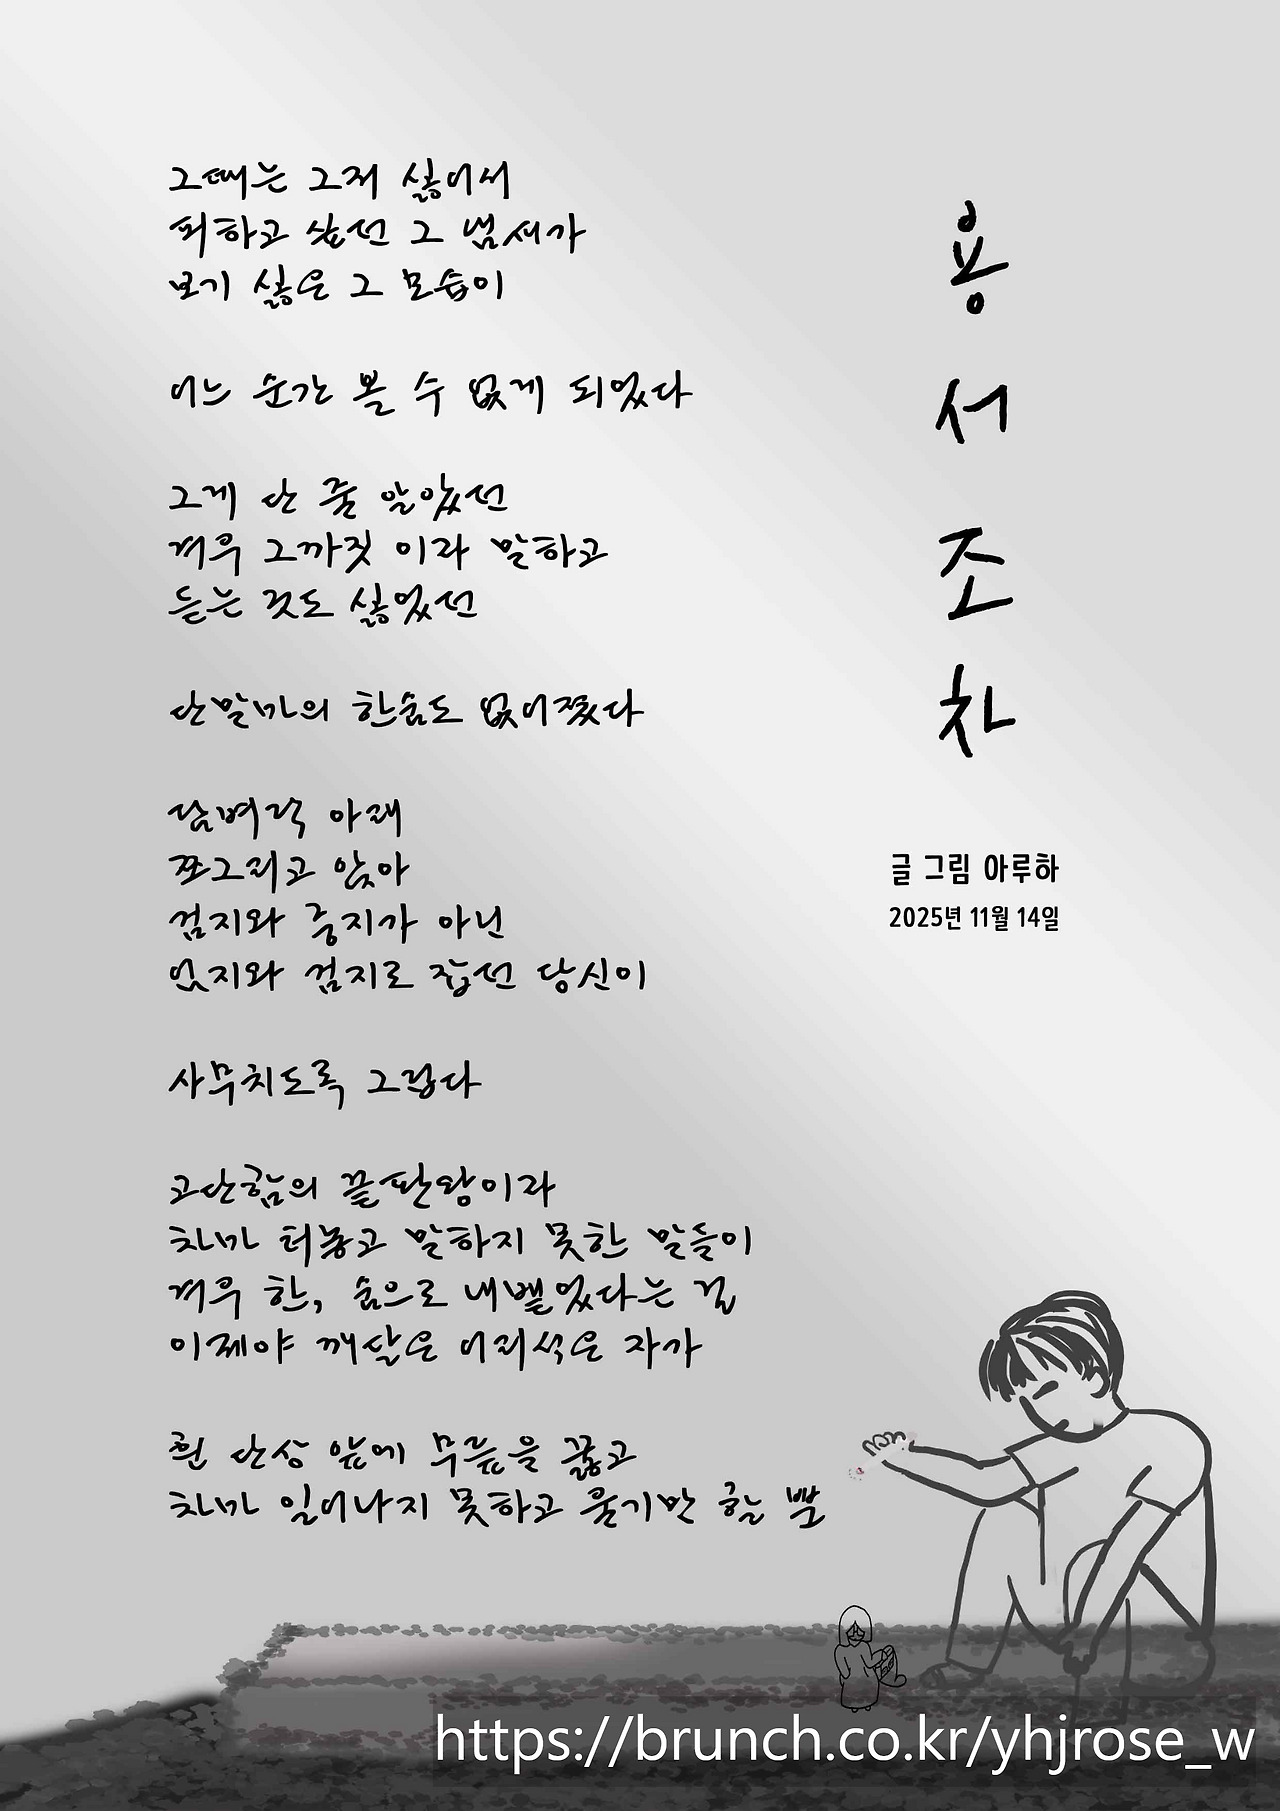 용서조차
글 그림 아루하
2025년 11월 14일
그때는 그저 싫어서
피하고 싶던 그 냄새가
보기 싫은 그 모습이
어느 순간 볼 수 없게 되었다
그게 단 줄 알았던
겨우 그까짓 이라 말하고
듣는 것도 싫었던
단말마의 한숨도 없어졌다
담벼락 아래
쪼그리고 앉아
검지와 중지가 아닌
엄지와 검지로 잡던 당신이
사무치도록 그립다
고단함의 끝판왕이라
차마 터놓고 말하지 못한 말들이
겨우 한, 숨으로 내뱉었다는 걸
이제야 깨달은 어리석은 자가
흰 단상 앞에 무릎을 꿇고
차마 일어나지 못하고 울기만 할 뿐
https://brunch.co.kr/yhjrose_w